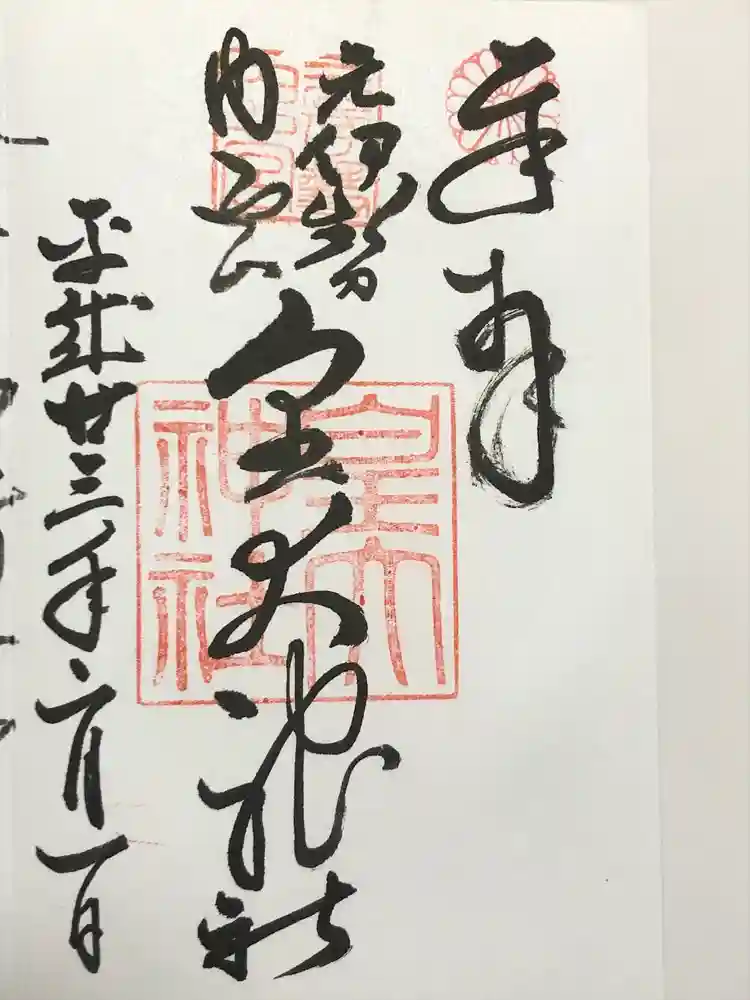 奉拝
元伊勢
内宮
皇大神社
平成廿三年六月一日
皇大神社